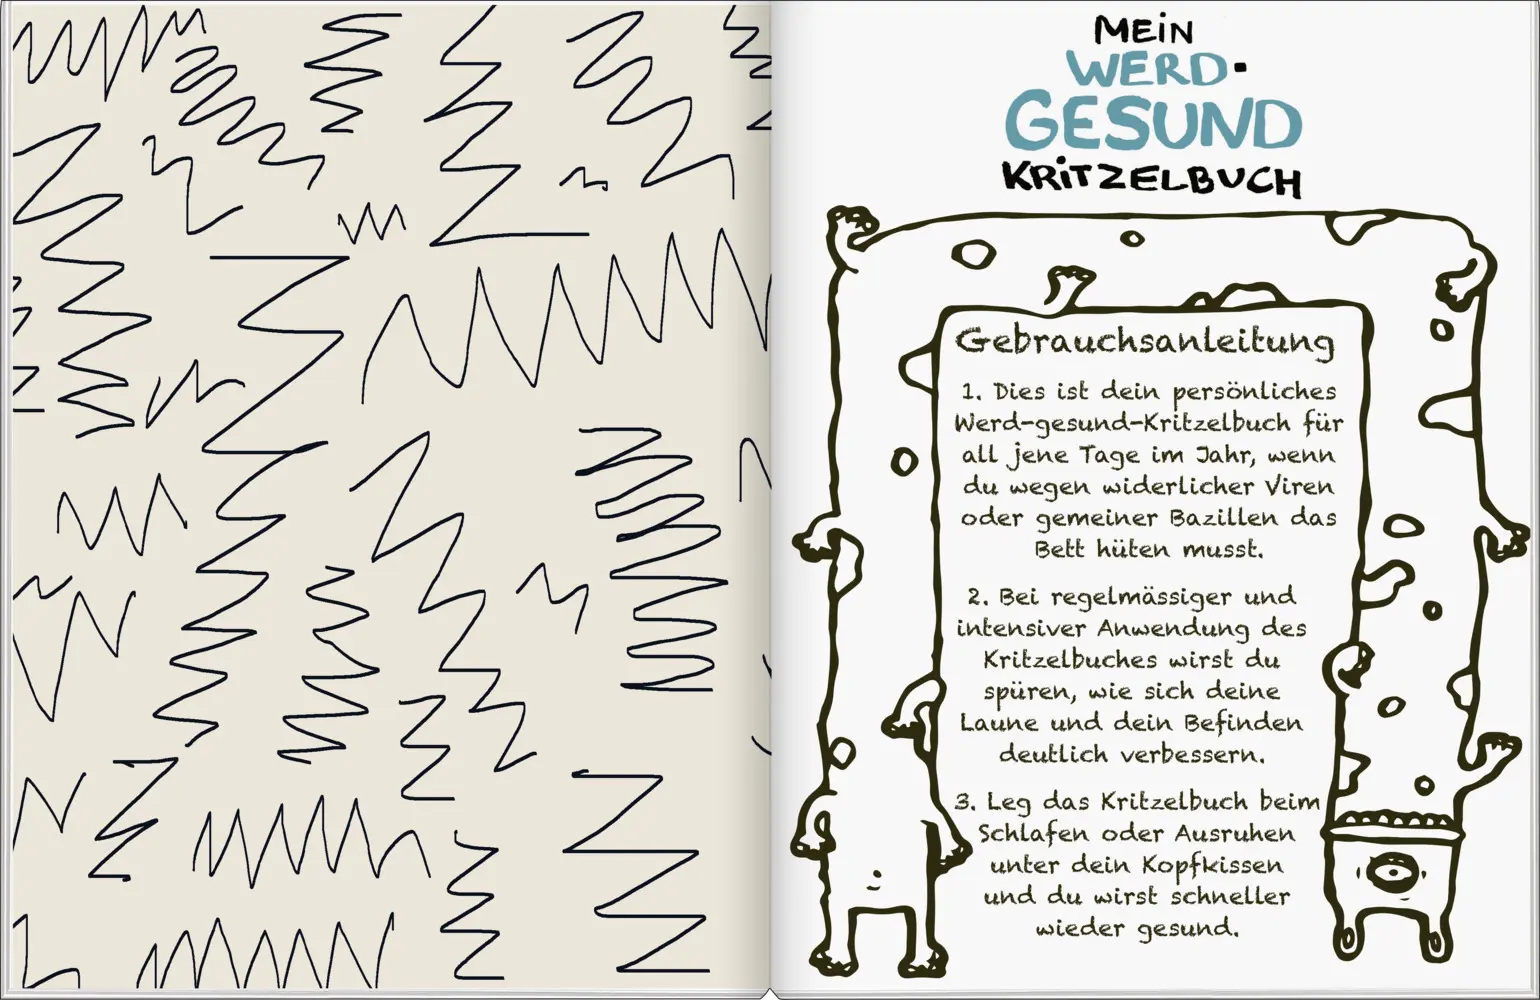 MEIN
WERD-
GESUND
KRITZELBUCH
Gebrauchsanleitung
1. Dies ist dein persönliches
Werd-gesund-Kritzelbuch für
all jene Tage im Jahr, wenn
du wegen widerlicher Viren
oder gemeiner Bazillen das
Bett hüten musst.
2. Bei regelmässiger und
intensiver Anwendung des
Kritzelbuches wirst du
spüren, wie sich deine
Laune und dein Befinden
deutlich verbessern.
3. Leg das Kritzelbuch beim
Schlafen oder Ausruhen
unter dein Kopfkissen
und du wirst schneller
wieder gesund.